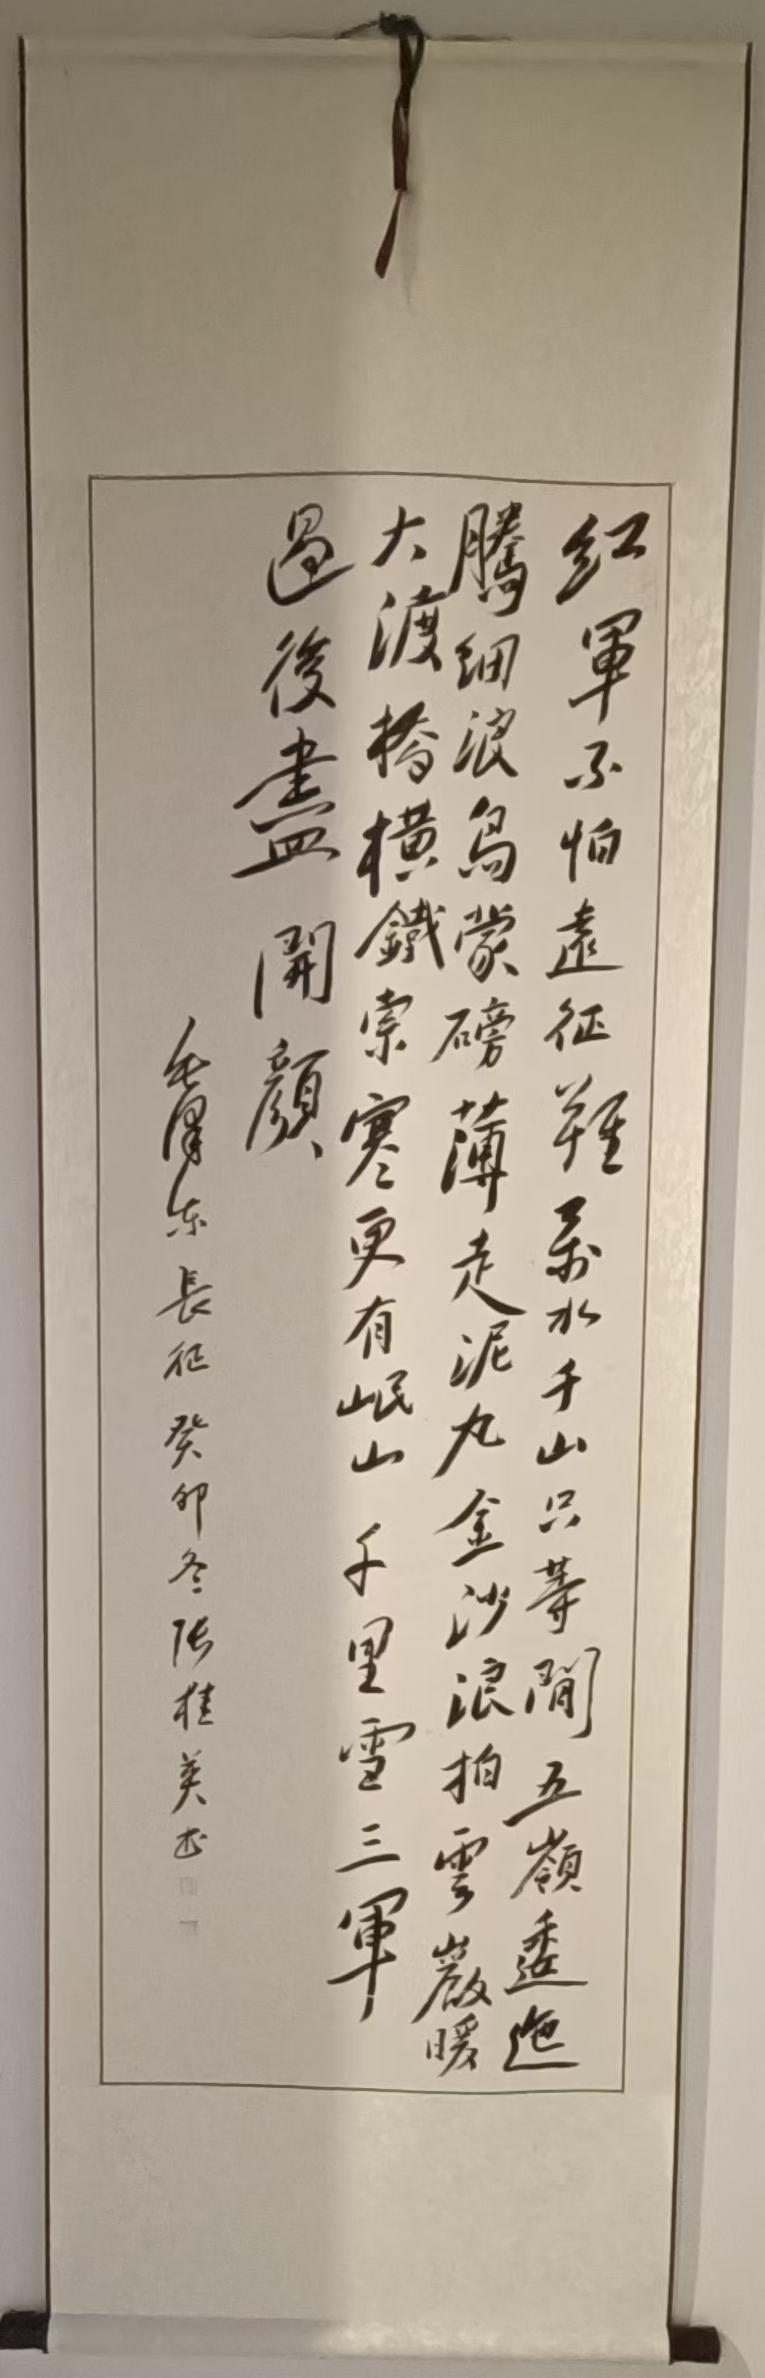 红軍不怕遠征難萬水千山只等閒五嶺逶迤
騰細浪烏蒙磅薄走泥丸金沙浪拍雲巖暖
大渡橋橫鐵索寒更有岷山千里雪三軍
過後盡開顏
毛澤东長征癸卯冬张桂英书